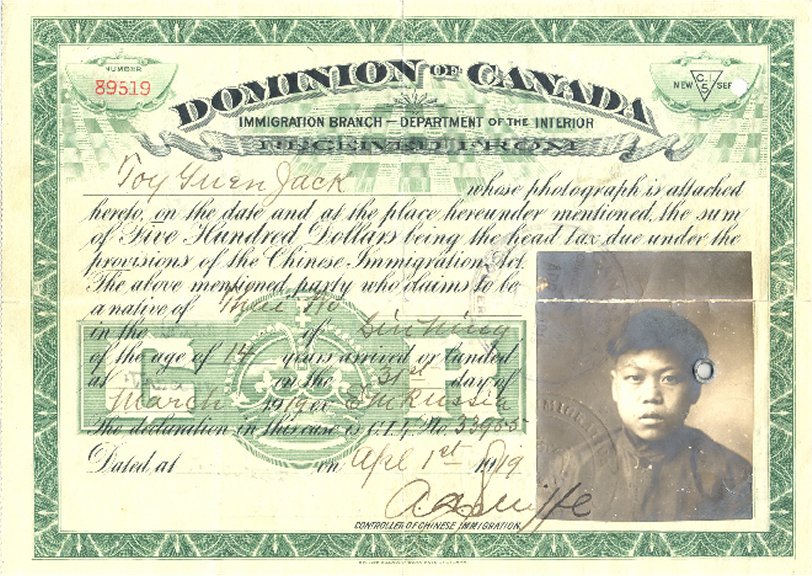 NUMBER
89519
DOMINION OF CANADA
NEW C.I. 5 SER
IMMIGRATION BRANCH — DEPARTMENT OF THE INTERIOR
RECEIVED FROM
Toy Guen Jack whose photograph is attached
hereto, on the date and at the place hereunder mentioned, the sum
of Five Hundred Dollars being the head tax due under the
provisions of the Chinese Immigration Act.
The above mentioned party who claims to be
a native of
in the of Sin Ning
of the age of 14 years arrived or landed
at on the 31st day of
March 1919 ex Em Russia
The declaration in this case is C.I.4 No. 33955
Dated at on Apl 1st 1919
CONTROLLER OF CHINESE IMMIGRATION
G R